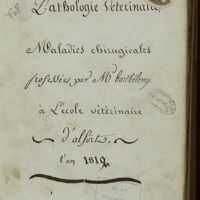 Pathologie Vétérinaire,
Maladies chirugicales
professées par Mr Barthélemy
à L'ecole vétérinaire
d'alfort.
l'an 1819